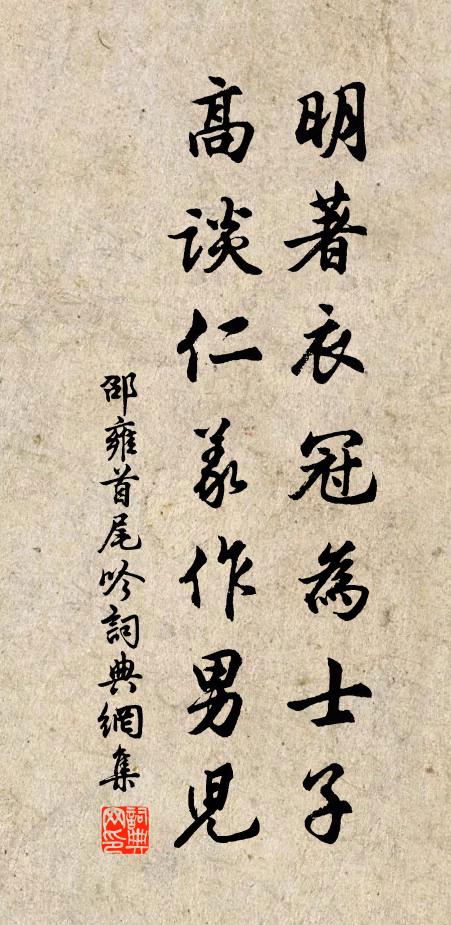 明著衣冠為士子
高談仁義作男児
邵雍首尾吟詞典網集
詞典網印